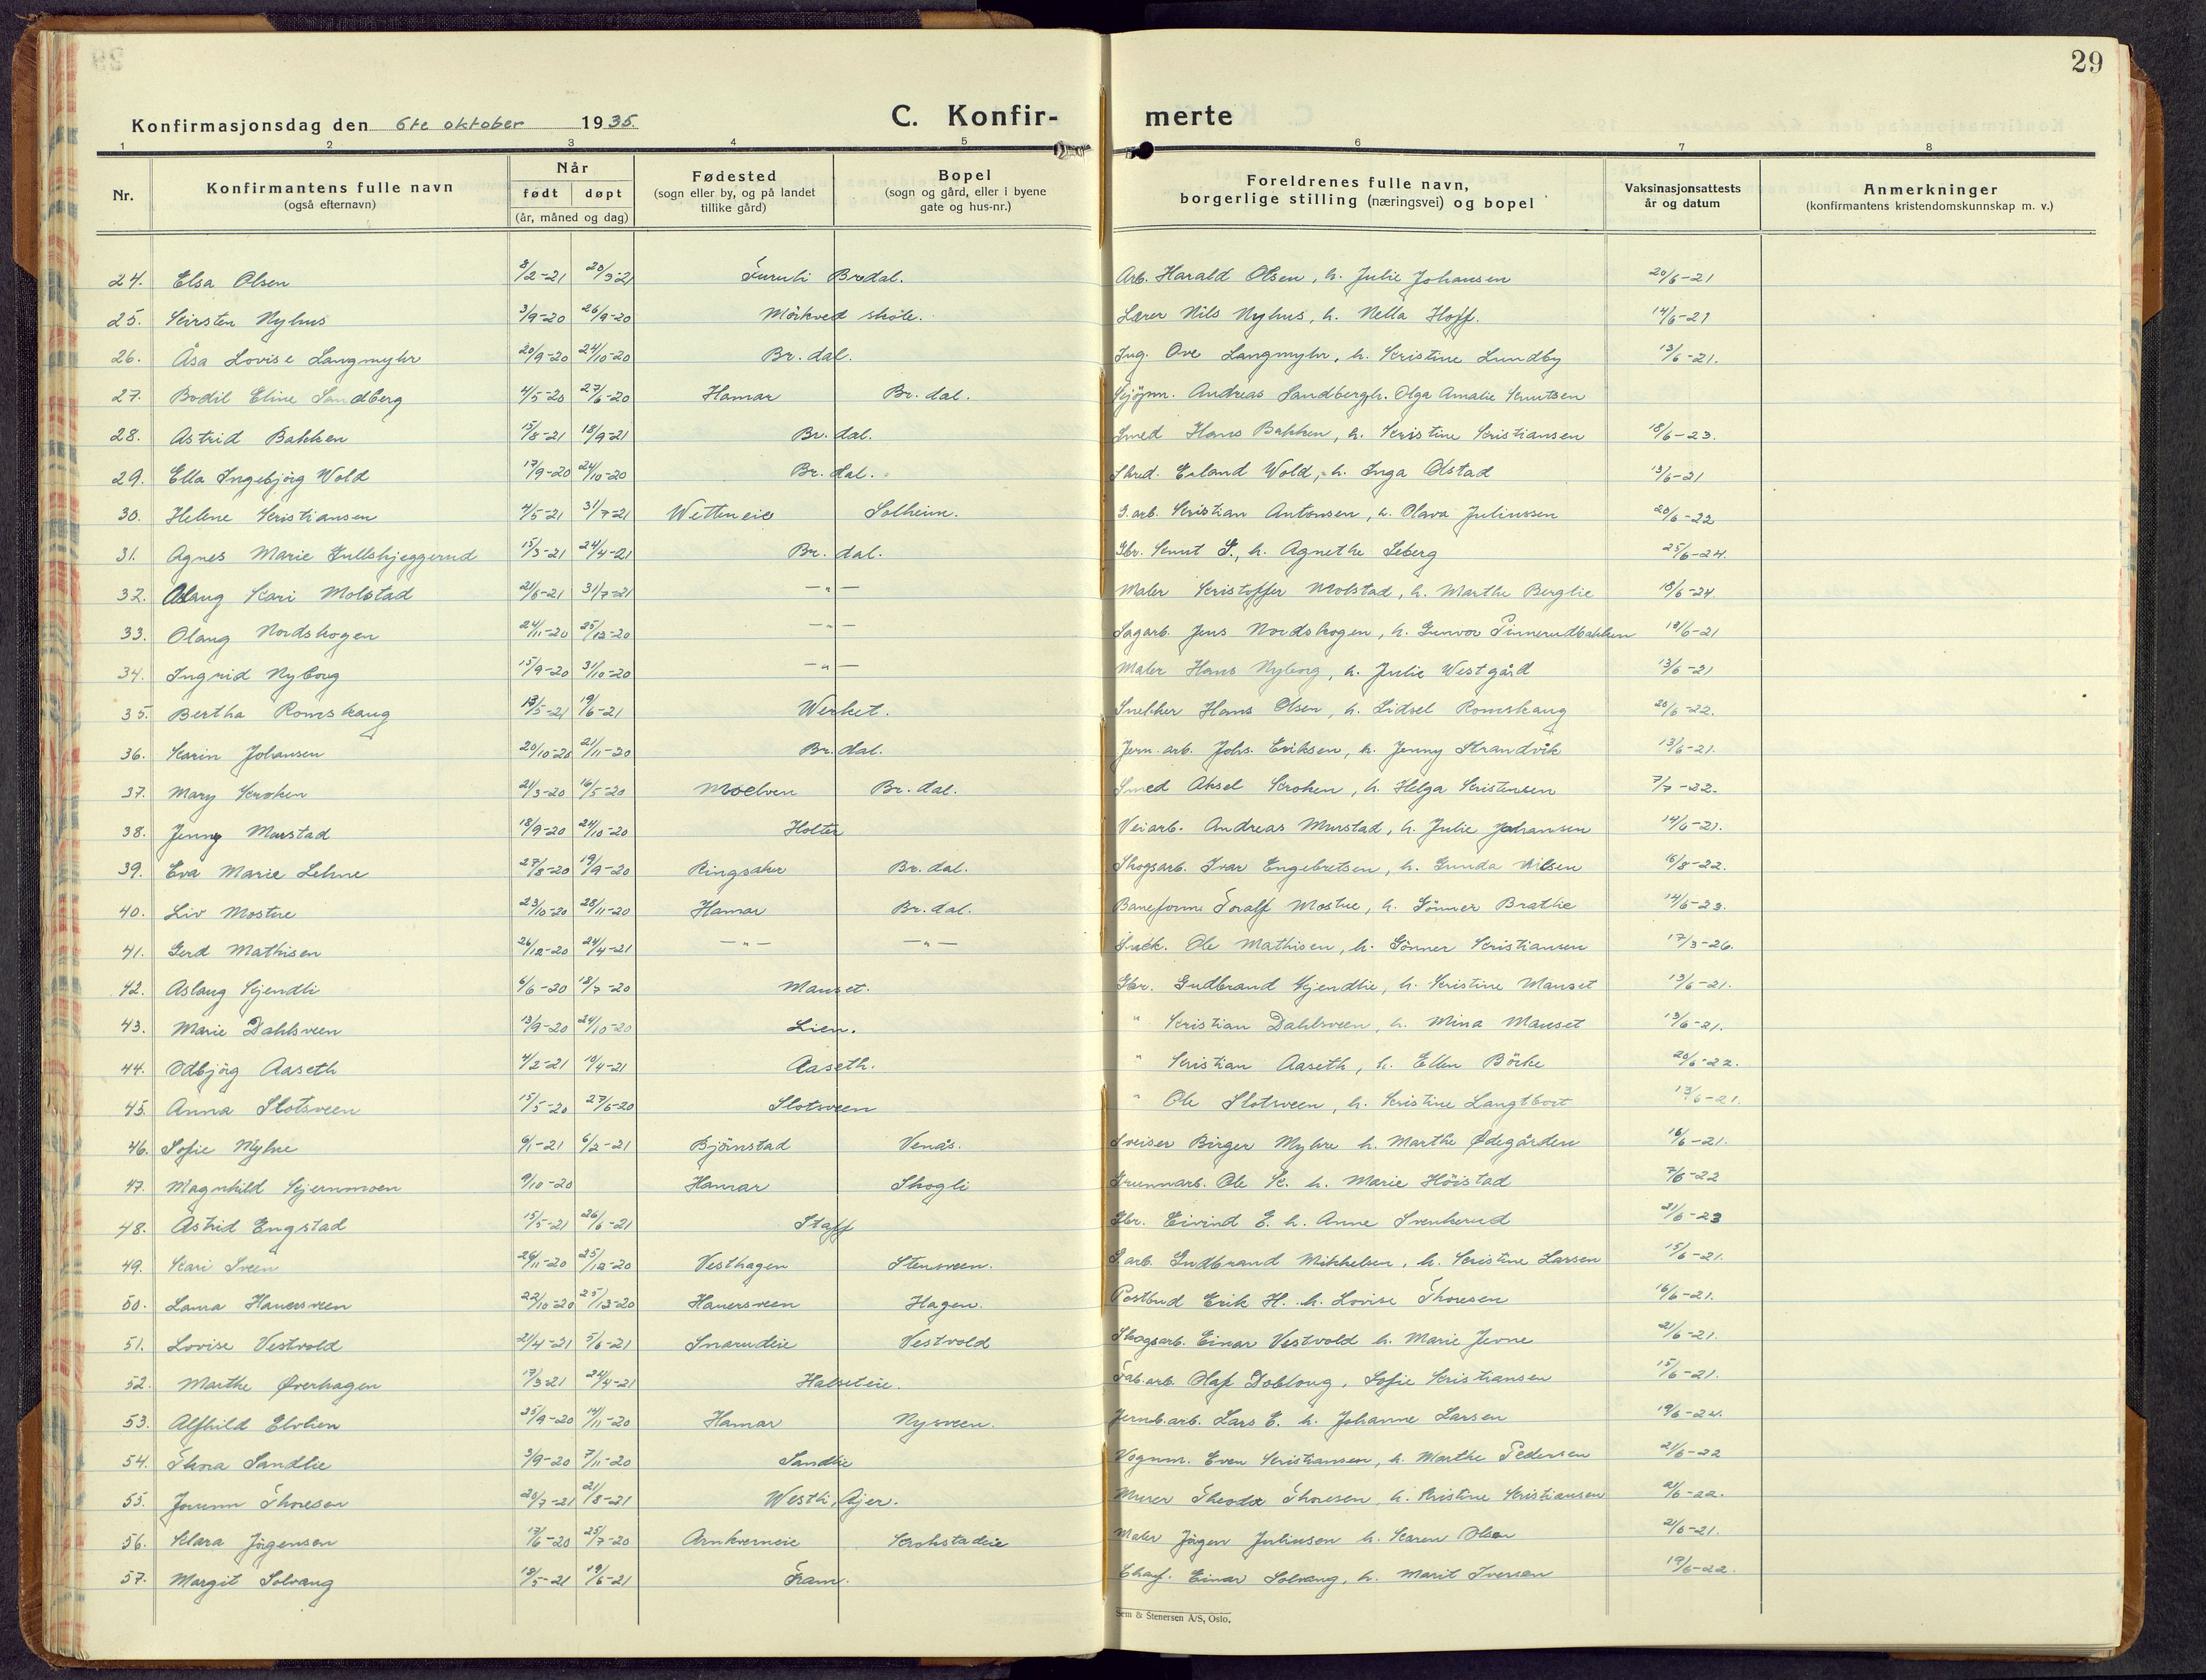 29
Konfirmasjonsdag den 6te oktober 1935.
C. Konfir- merte
1 2 3 4 5 6 7 8
Nr.
Konfirmantens fulle navn
(også efternavn)
Når
født døpt
(år, måned og dag)
Fødested
(sogn eller by, og på landet
tillike gård)
Bopel
(sogn og gård, eller i byene
gate og hus-nr.)
Foreldrenes fulle navn,
borgerlige stilling (næringsvei) og bopel
Vaksinasjonsattests
år og datum
Anmerkninger
(konfirmantens kristendomskunnskap m. v.)
24. Elsa Olsen 8/2-21 20/3-21 Furuli Br.dal. Arb. Harald Olsen, h. Julie Johansen 20/6-21
25. Kirsten Nyhus 3/9-20 26/9-20 Mörkved skole. Lærer Nils Nyhus, h. Nella Hoff. 14/6-21
26. Åsa Lovise Langmyhr 20/9-20 24/10-20 Br. dal. Ing. Ove Langmyhr, h. Kristine Lundby 13/6-21.
27. Bodil Eline Sandberg 4/5-20 27/6-20 Hamar Br. dal. Kjöpm. Andreas Sandberg, h. Olga Amalie Knutsen
28. Astrid Bakken 15/8-21 18/9-21 Br. dal. Smed Hans Bakken, h. Kristine Kristiansen 18/6-23.
29. Ella Ingebjörg Wold 17/9-20 24/10-20 Br. dal. Skred. Erland Wold, h. Inga Olstad 13/6-21
30. Helene Kristiansen 4/5-21 31/7-21 Wetteneie Solheim. G.arb. Kristian Antonsen, h. Olava Juliussen 20/6-22
31. Agnes Marie Gullskjeggerud 15/3-21 24/4-21 Br. dal. Gbr. Knut G., h. Agnethe Seberg 25/6-24.
32. Aslaug Kari Molstad 21/6-21 31/7-21 — " — Maler Kristoffer Molstad, h. Marthe Berglie 18/6-24.
33. Olaug Nordskogen 24/11-20 25/12-20 — " — Sagarb. Jens Nordskogen, h. Gunvor Finnerudbakken 13/6-21
34. Ingrid Nyborg 15/9-20 31/10-20 — " — Maler Hans Nyborg, h. Julie Westgård 13/6-21
35. Bertha Romskaug 13/5-21 19/6-21 Werket. Snekker Hans Olsen, h. Sidsel Romskaug 20/6-22.
36. Karin Johansen 20/10-20 21/11-20 Br. dal. Jern. arb. Johs. Eriksen, h. Jenny Strandvik 13/6-21.
37. Mary Kroken 21/3-20 16/5-20 Moelven Br. dal. Smed Aksel Kroken, h. Helga Kristensen 7/7-22.
38. Jenny Murstad 18/9-20 24/10-20 Holter Veiarb. Andreas Murstad, h. Julie Johansen 14/6-21.
39. Eva Marie Lehne 27/8-20 19/9-20 Ringsaker Br. dal. Skogsarb. Ivar Engebretsen, h. Gunda Nilsen 16/8-22.
40. Liv Mostue 23/10-20 28/11-20 Hamar Br. dal. Baneform. Toralf Mostue, h. Gönner Brathie 14/6-23.
41. Gerd Mathisen 26/12-20 24/4-21 — " — — " — Snek. Ole Mathisen, h. Gönner Kristiansen 17/3-26.
42. Aslaug Kjendli 6/6-20 18/7-20 Mauset. Gbr. Gudbrand Kjendlie, h. Kristine Mauset 13/6-21.
43. Marie Dahlsveen 13/9-20 24/10-20 Lien. " Kristian Dahlsveen, h. Mina Mauset 13/6-21.
44. Odbjörg Aaseth 4/2-21 10/4-21 Aaseth. " Kristian Aaseth, h. Ellen Börke 20/6-22.
45. Anna Slotsveen 15/5-20 27/6-20 Slotsveen " Ole Slotsveen, h. Kristine Langtbort 13/6-21.
46. Sofie Myhre 6/1-21 6/2-21 Björnstad Venås. Sveiser Birger Myhre h. Marthe Ødegården 16/6-21.
47. Magnhild Kjernmoen 9/10-20 Hamar Skogli Grunnarb. Ole K. h. Marie Höistad 7/6-22
48. Astrid Engstad 15/5-21 26/6-21 Staff Gbr. Eivind E. h. Anne Svenkerud 21/6-23
49. Kari Sveen 26/11-20 25/12-20 Vesthagen Stensveen. G.arb. Gudbrand Mikkelsen, h. Kristine Larsen 15/6-21.
50. Laura Hauersveen 22/10-20 25/12-20 Hauersveen Hagen. Postbud Erik H. h. Lovise Thoresen 16/6-21.
51. Lovise Vestvold 21/4-21 5/6-21 Snarudeie Vestvold Skogsarb. Einar Vestvold h. Marie Jevne 21/6-21.
52. Marthe Øverhagen 17/3-21 24/4-21 Halseteie. Fab.arb. Olaf Dobloug, Sofie Kristiansen 15/6-21.
53. Alfhild Elvlien 25/9-20 14/11-20 Hamar Nysveen. Jernb.arb. Lars E. h. Johanne Larsen 19/6-24.
54. Thora Sandlie 3/9-20 7/11-20 Sandlie Vognm. Even Kristiansen, h. Marthe Pedersen 21/6-22
55. Jorunn Thoresen 20/7-21 21/8-21 Westli, Ajer. Murer Theodor Thoresen, h. Kristine Kristiansen 21/6-22.
56. Klara Jörgensen 17/6-20 25/7-20 Arnkverneie Krokstadeie Maler Jörgen Juliussen h. Karen Olsen 21/6-21.
57. Margit Solvang 13/5-21 19/6-21 Fram. Chauf. Einar Solvang, h. Marit Iversen 19/6-22.
Sem & Stenersen A/S, Oslo.